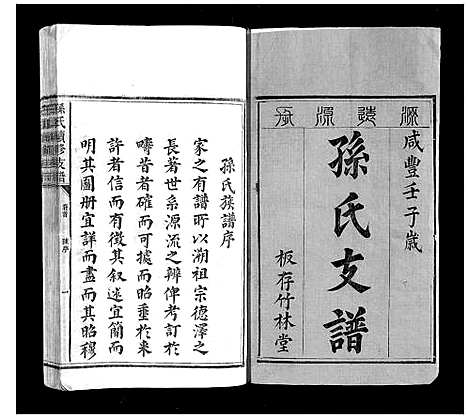 咸豐壬子歲
孫氏支譜
板存竹林堂
孫氏族譜序
家之有譜所以溯祖宗德澤之
長著世系源流之辨俾考訂於
疇昔者確而可據而昭垂於來
許者信而有徵其叙述宜簡而
明其圖册宜詳而盡而其昭穆
孫氏續修支譜
卷首
族序
一